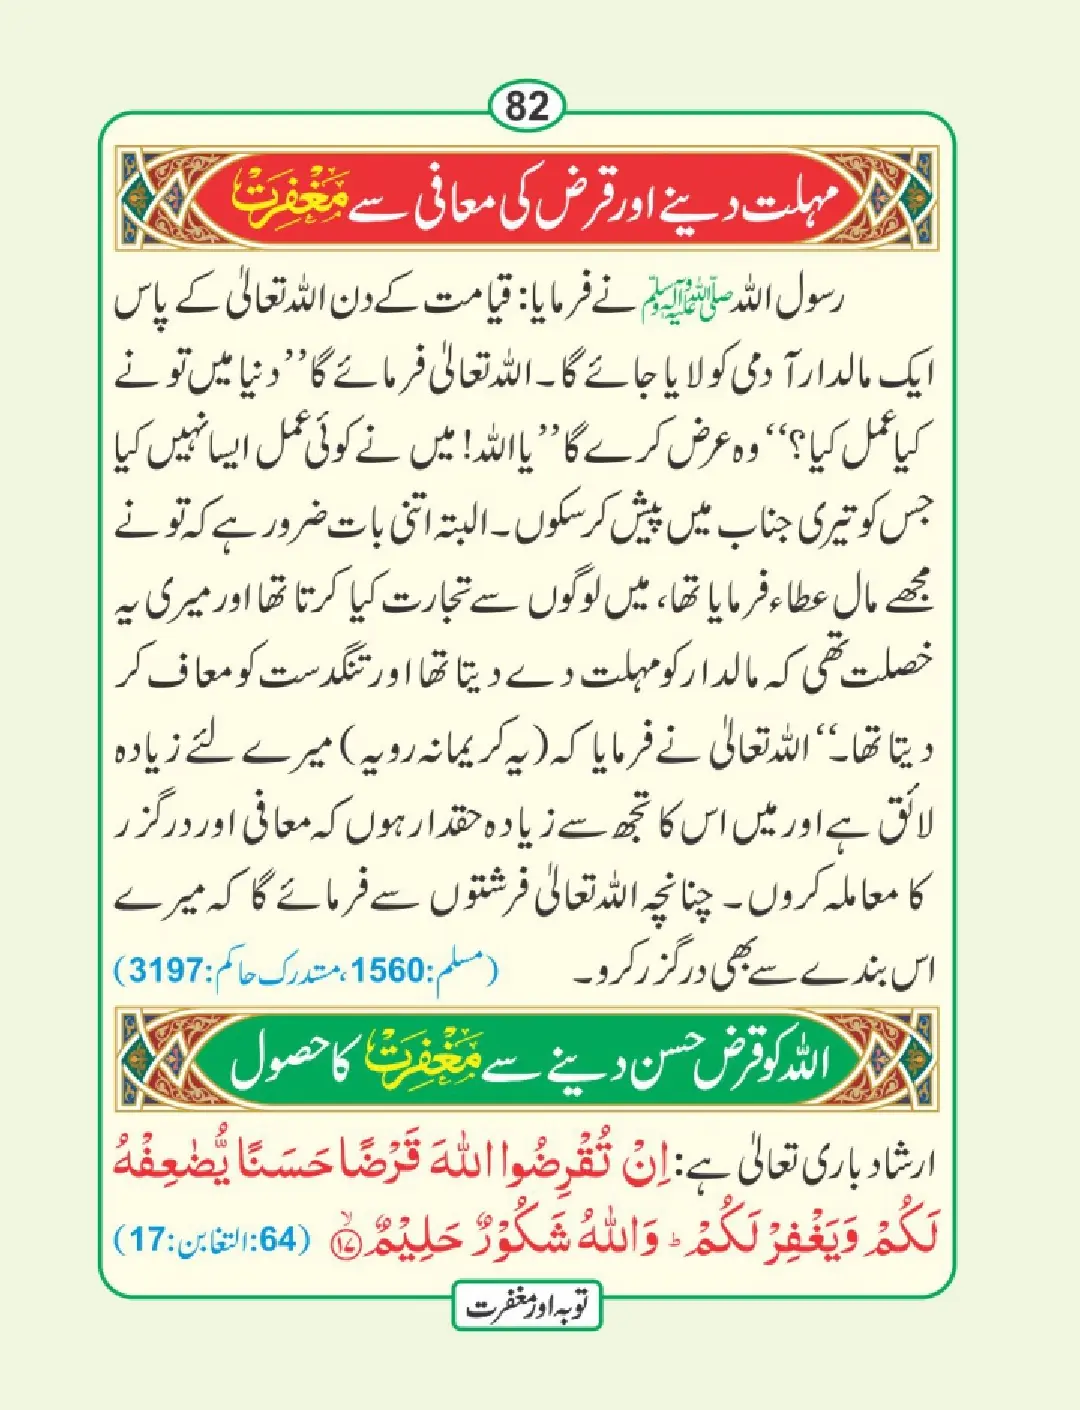 82
مہلت دینے اور قرض کی معافی سے مغفرت
رسول اللہ ﷺ نے فرمایا: قیامت کے دن اللہ تعالیٰ کے پاس
ایک مالدار آدمی کو لایا جائے گا۔ اللہ تعالیٰ فرمائے گا ’’دنیا میں تو نے
کیا عمل کیا؟‘‘ وہ عرض کرے گا ’’یا اللہ! میں نے کوئی عمل ایسا نہیں کیا
جس کو تیری جناب میں پیش کرسکوں۔ البتہ اتنی بات ضرور ہے کہ تو نے
مجھے مال عطاء فرمایا تھا، میں لوگوں سے تجارت کیا کرتا تھا اور میری یہ
خصلت تھی کہ مالدار کو مہلت دے دیتا تھا اور تنگدست کو معاف کر
دیتا تھا۔‘‘ اللہ تعالیٰ نے فرمایا کہ (یہ کریمانہ رویہ) میرے لئے زیادہ
لائق ہے اور میں اس کا تجھ سے زیادہ حقدار ہوں کہ معافی اور درگزر
کا معاملہ کروں۔ چنانچہ اللہ تعالیٰ فرشتوں سے فرمائے گا کہ میرے
اس بندے سے بھی درگزر کرو۔ (مسلم:1560، مستدرک حاکم:3197)
اللہ کو قرض حسن دینے سے مغفرت کا حصول
ارشاد باری تعالیٰ ہے: اِنْ تُقْرِضُوا اللّٰهَ قَرْضًا حَسَنًا یُّضٰعِفْهُ
لَكُمْ وَیَغْفِرْ لَكُمْ ؕ وَاللّٰهُ شَكُوْرٌ حَلِیْمٌ ۙ۱۷ (64:التغابن:17)
توبہ اور مغفرت